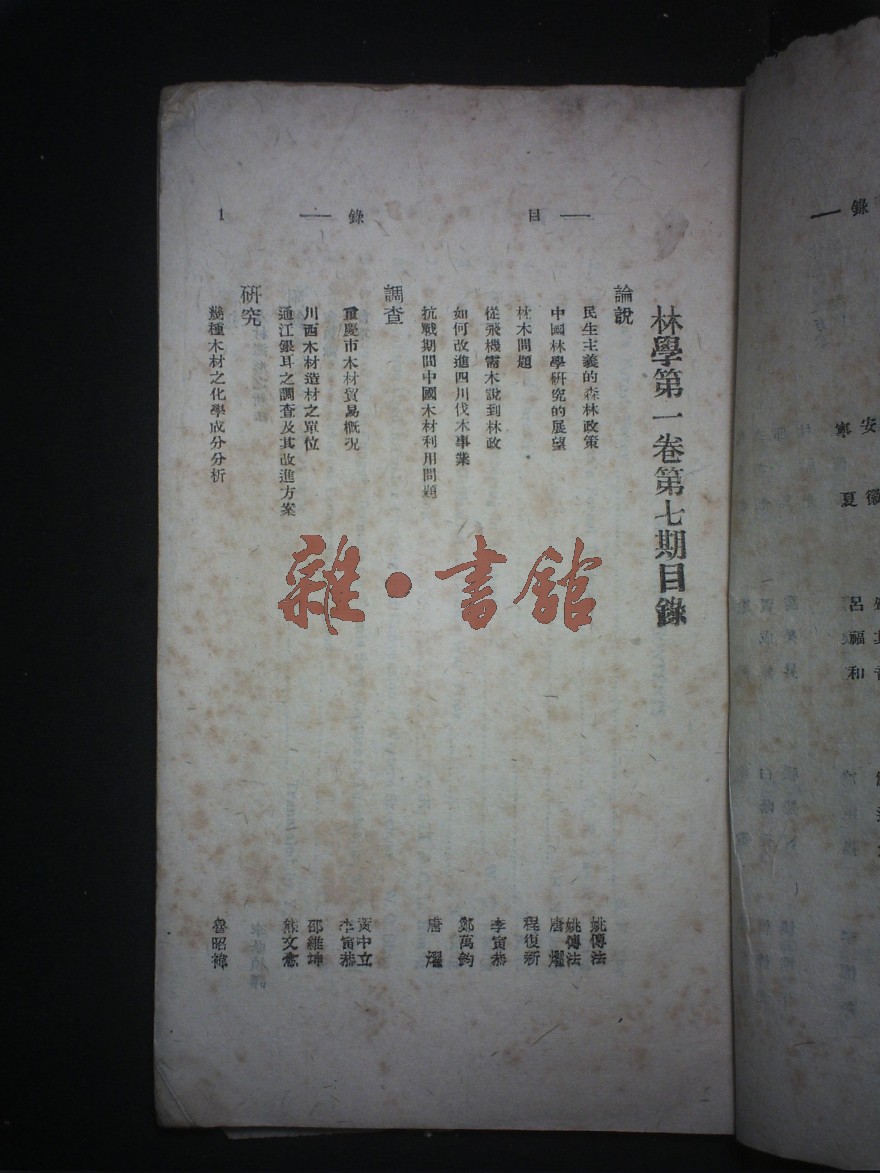 目 錄 1
林學第一卷第七期目錄
論說
民生主義的森林政策 姚傳法
中國林學研究的展望 姚傳法 唐燿
林木問題 程復新
從飛機需木說到林政 李寅恭
如何改進四川伐木事業 鄭萬鈞
抗戰期間中國木材利用問題 唐燿
調查
重慶市木材貿易概況 黃中立 李寅恭
川西木材造材之單位 邵維坤
通江銀耳之調查及其改進方案 熊文愈
研究
幾種木材之化學成分分析 魯昭禕
雜·書館
錄
安徽
寧夏
呂福和